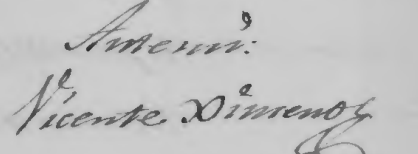 Ante mi:
Vicente Ximeno